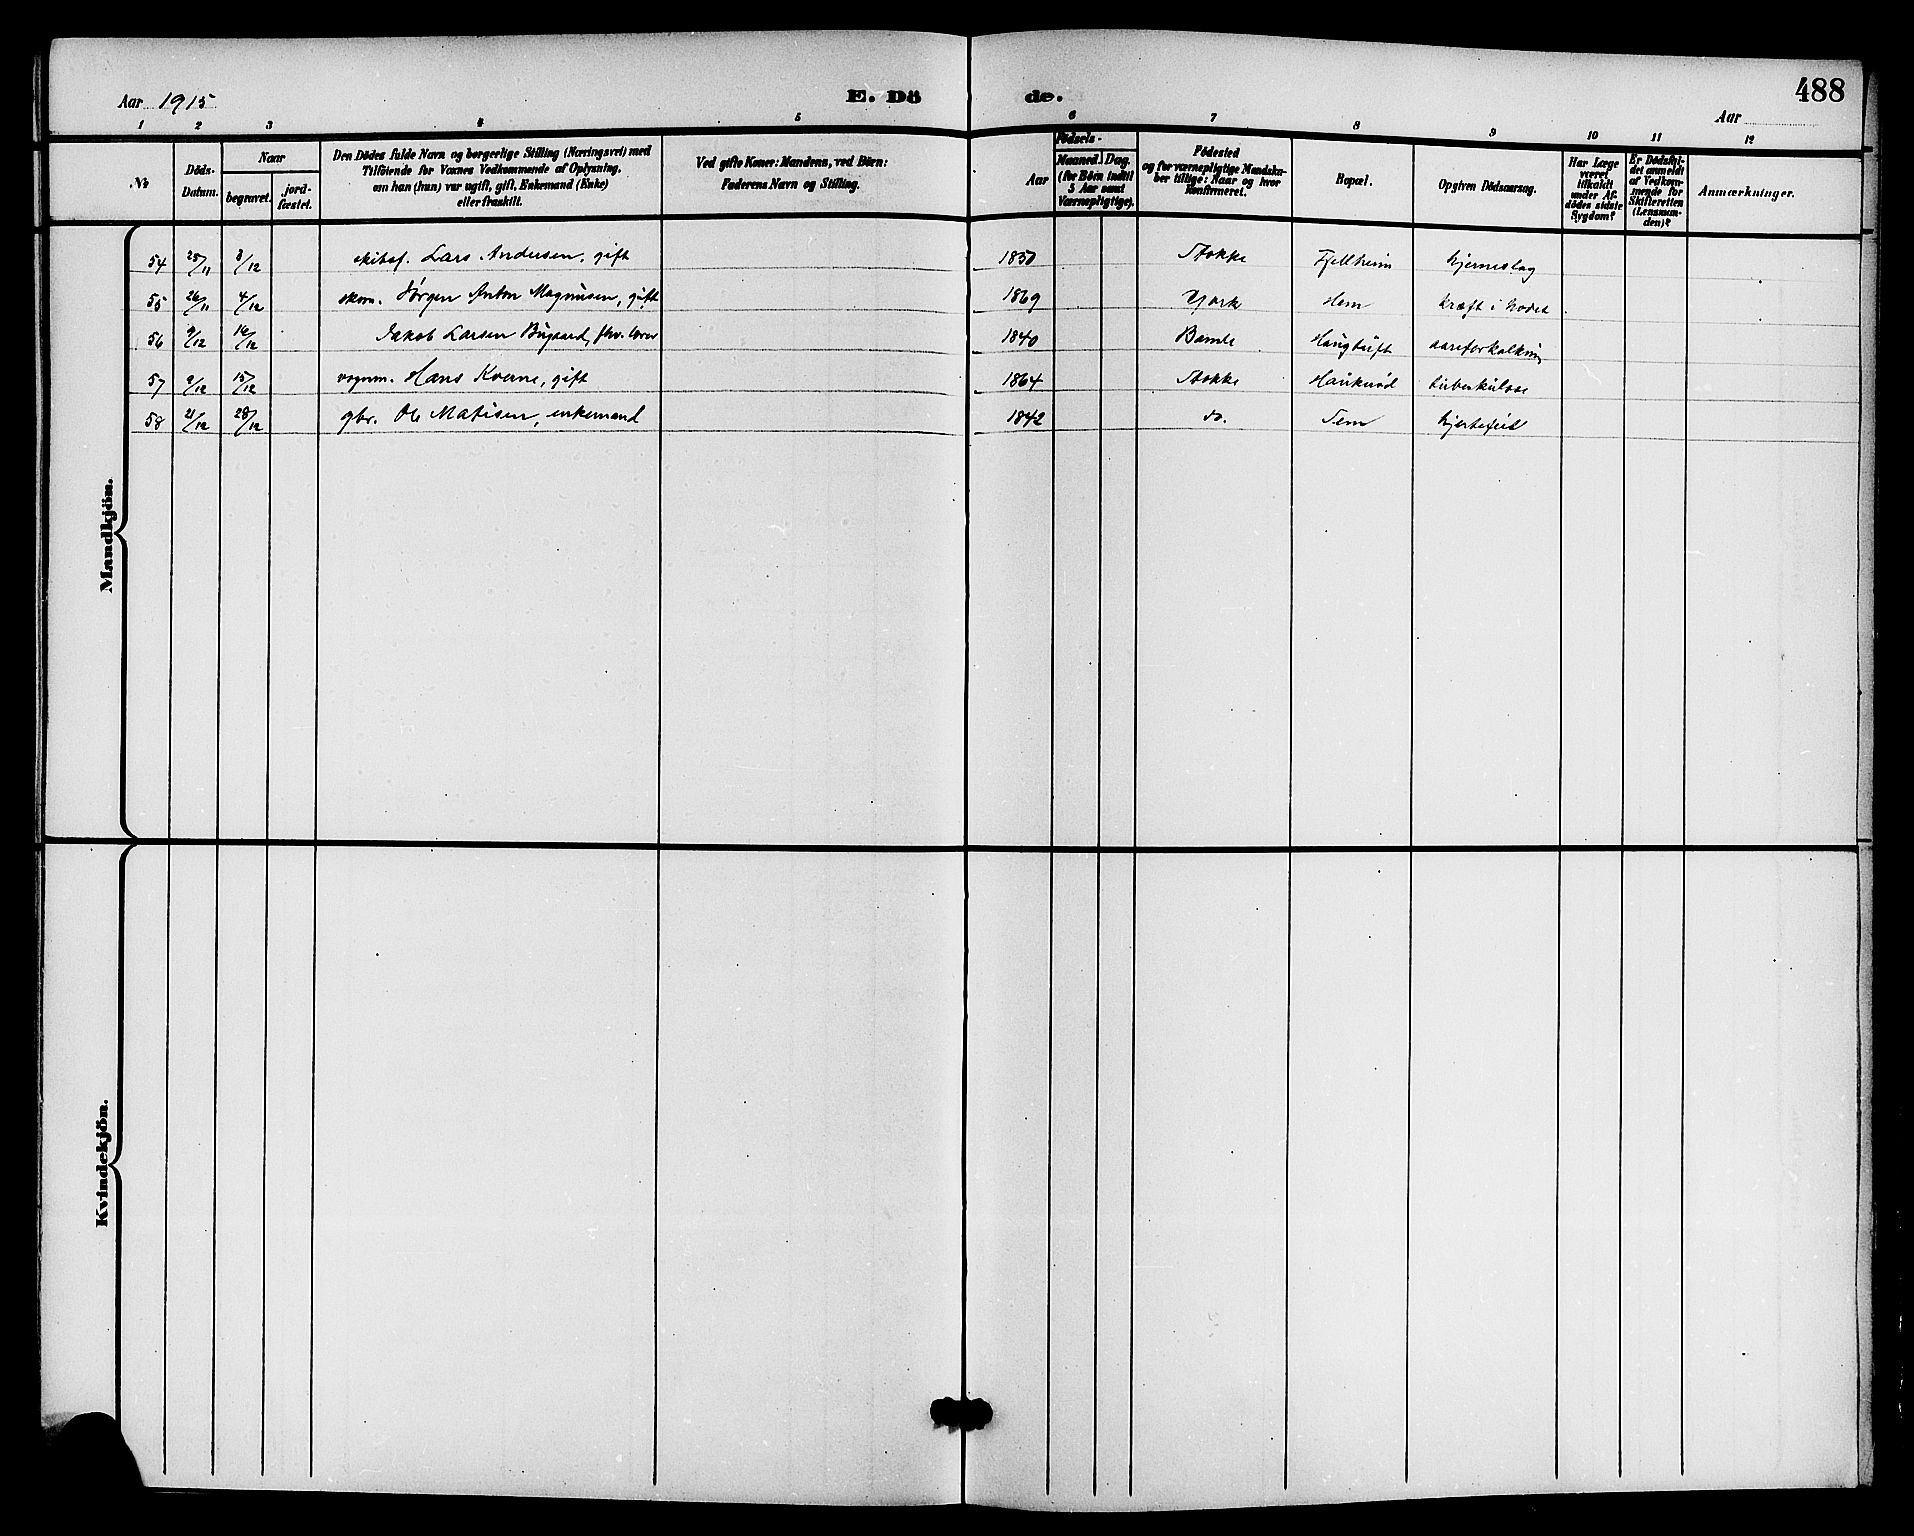 488
Aar 1915 E. Dö de. Aar
1 2 3 4 5 6 7 8 9 10 11 12
№
Döds-Datum.
Naar
begravet.
jord-fæstet.
Den Dödes fulde Navn og borgerlige Stilling (Næringsvei) med
Tilföiende for Voxnes Vedkommende af Oplysning,
om han (hun) var ugift, gift, Enkemand (Enke)
eller fraskilt.
Ved gifte Koner: Mandens, ved Börn:
Faderens Navn og Stilling.
Födsels-
Aar
Maaned. Dag.
(for Börn indtil
5 Aar samt
Værnepligtige).
Födested
og for værnepligtige Mandska-
ber tillige: Naar og hvor
Konfirmeret.
Bopæl.
Opgiven Dödsaarsag.
Har Læge
været
tilkaldt
under Af-
dödes sidste
Sygdom?
Er Dödsfal-
det anmeldt
af Vedkom-
mende for
Skifteretten
(Lensman-
den)?
Anmærkninger.
Mandkjön.
54 25/11 3/12 Lars Andersen, gift 1850 Stokke Fjellheim hjerneslag
55 26/11 4/12 skom. Jørgen Anton Magnusen, gift 1869 Hem kræft i hodet
56 9/12 16/12 Jakob Larsen Bugaard, fhv. lærer 1840 Bamle Haugtuft aareforkalkning
57 9/12 15/12 vognm. Hans Kverne, gift 1864 Stokke Haukerød tuberkulose
58 21/12 28/12 gbr. Ole Matisen, enkemand 1842 do. Tem hjertefeil
Kvindekjön.